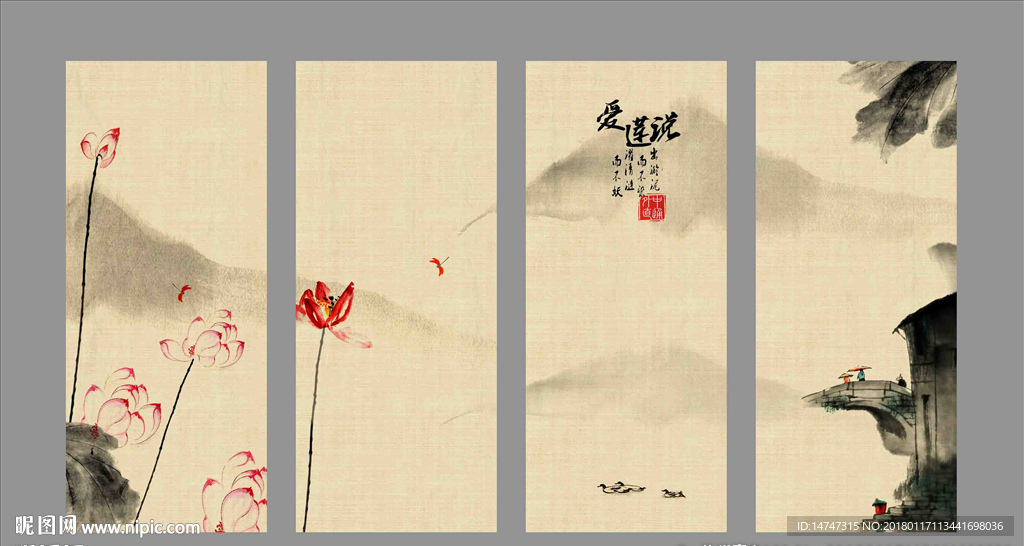 爱蓮说
出淤泥
而不染
濯清涟
而不妖
中通
外直
昵图网 www.nipic.com
ID:14747315 NO:20180117113441698036